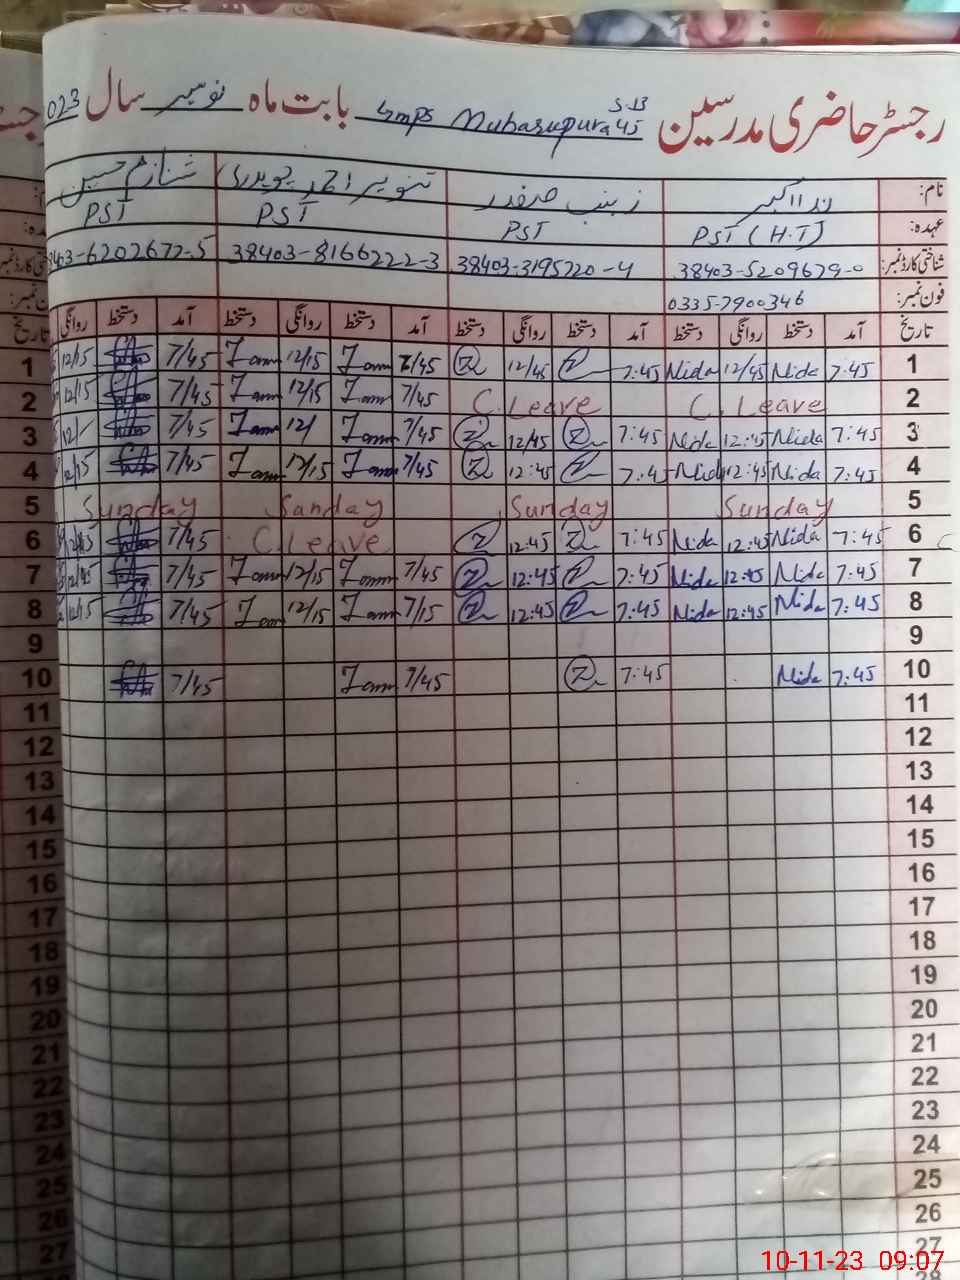 رجسٹر حاضری مدرسین GMPS Mubarupura 45 بابت ماہ نومبر سال 023
نام: ندا اکبر زینب صفدر تنویر احمد چوہدری حسین
عہدہ: PST (H.T) PST PST PST
شناختی کارڈ نمبر: 38403-5209679-0 38403-3195720-4 38403-8166222-3 8403-6202672-5
فون نمبر: 0335-7900346
تاریخ آمد دستخط روانگی دستخط آمد دستخط روانگی دستخط آمد دستخط روانگی دستخط آمد دستخط روانگی
1 7:45 Nida 12/45 Nida 7:45 12/45 7/45 12/15 7/45 12/15 1
2 C. Leave C. Leave 7/45 12/15 7/45 12/15 2
3 7:45 Nida 12:45 Nida 7:45 12/45 7/45 12/ 7/45 12/ 3
4 7:45 Nida 12:45 Nida 7:45 12:45 7/45 12/15 7/45 12/15 4
5 Sunday Sunday Sanday Sunday 5
6 7:45 Nida 12:45 Nida 7:45 12:45 C. Leave 7/45 6
7 7:45 Nida 12:45 Nida 7:45 12:45 7/45 12/15 7/45 12/45 7
8 7:45 Nida 12:45 Nida 7:45 12:45 7/15 12/15 7/45 12/15 8
9 9
10 7:45 Nida 7:45 7/45 7/45 10
11 11
12 12
13 13
14 14
15 15
16 16
17 17
18 18
19 19
20 20
21 21
22 22
23 23
24 24
25 25
26 26
27 27
28
10-11-23 09:07